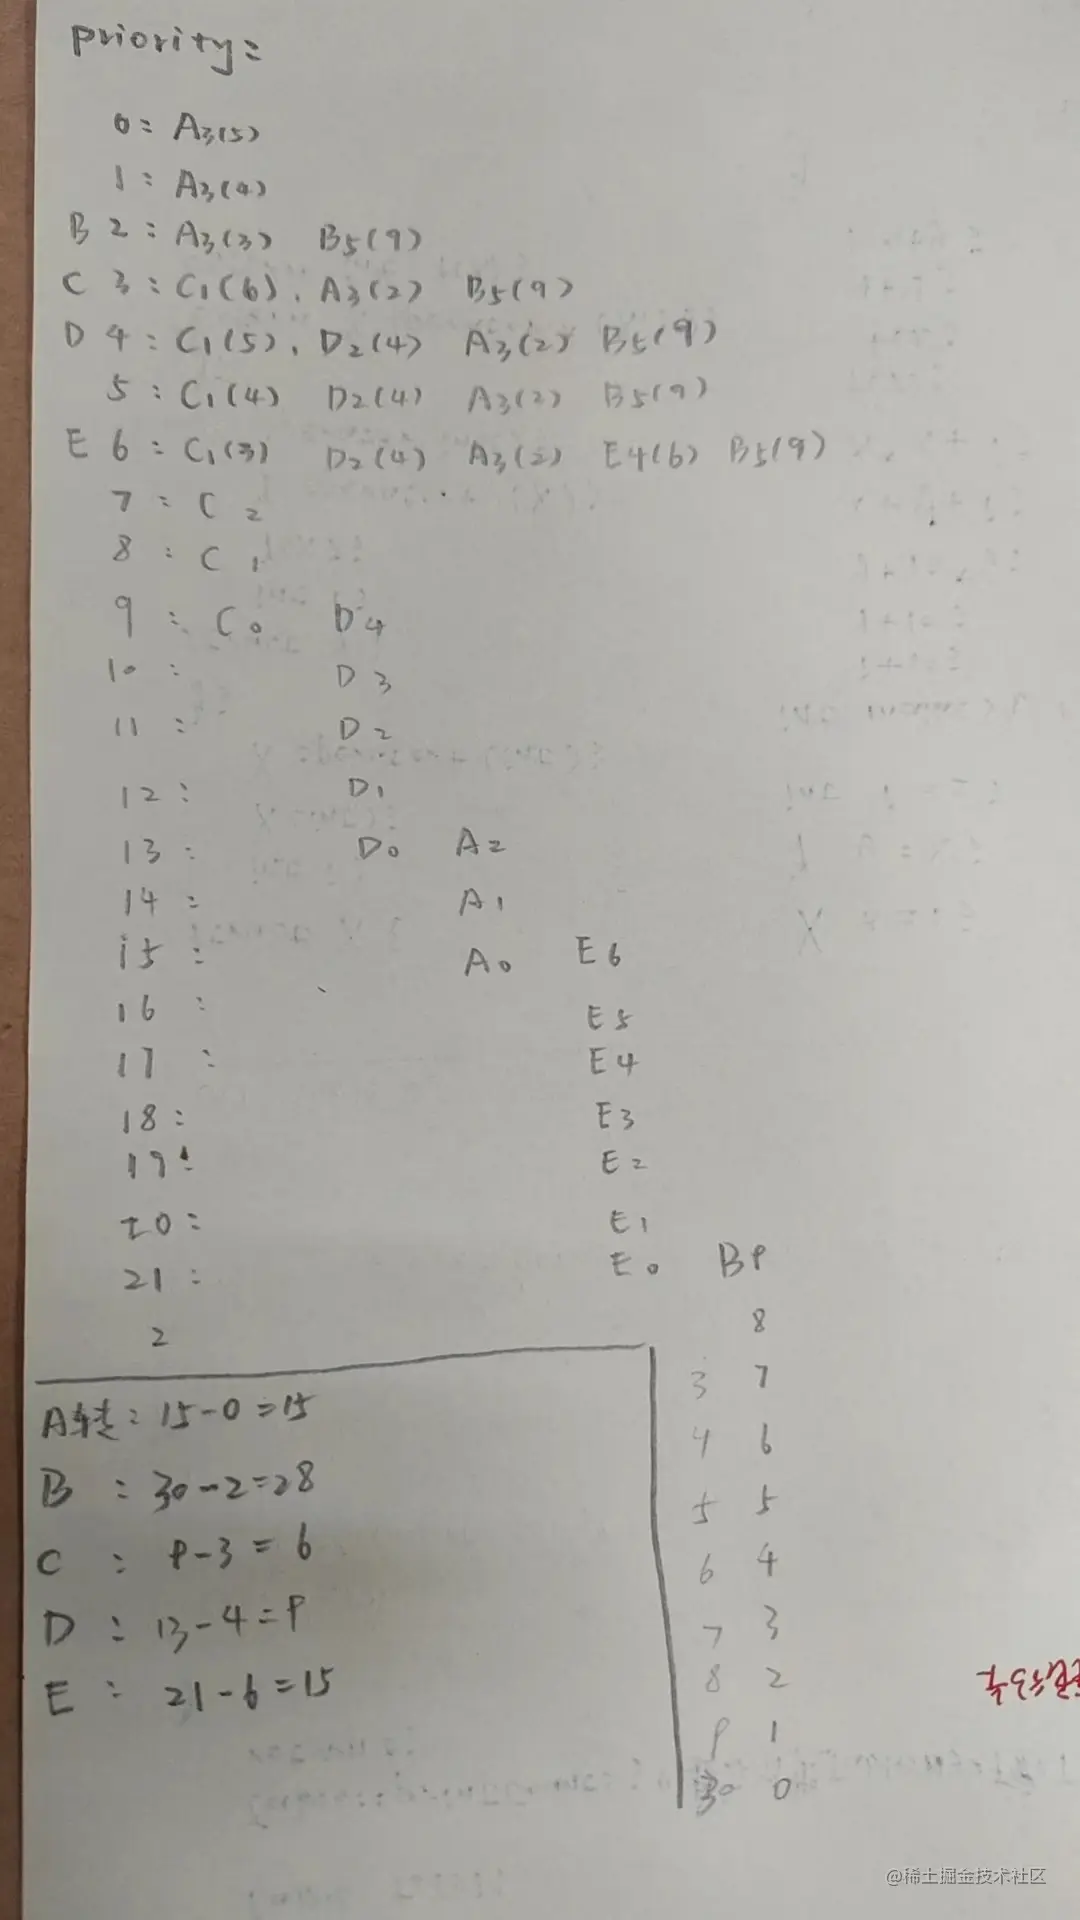 priority:
0: A3(5)
1: A3(4)
B 2: A3(3) B5(9)
C 3: C1(6), A3(2) B5(9)
D 4: C1(5), D2(4) A3(2) B5(9)
5: C1(4) D2(4) A3(2) B5(9)
E 6: C1(3) D2(4) A3(2) E4(6) B5(9)
7: C2
8: C1
9: C0 D4
10: D3
11: D2
12: D1
13: D0 A2
14: A1
15: A0 E6
16: E5
17: E4
18: E3
19: E2
20: E1
21: E0 B9
2 8
3 7
4 6
5 5
6 4
7 3
8 2
9 1
30 0
A转: 15-0=15
B: 30-2=28
C: 9-3=6
D: 13-4=9
E: 21-6=15
@稀土掘金技术社区